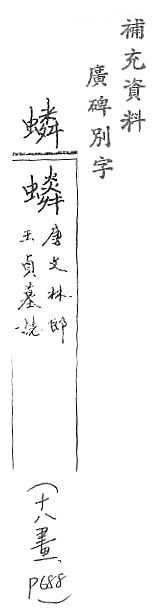 補充資料
廣碑別字
蟒
蟒
唐文林郎
王貞墓誌
(十八畫、
P688